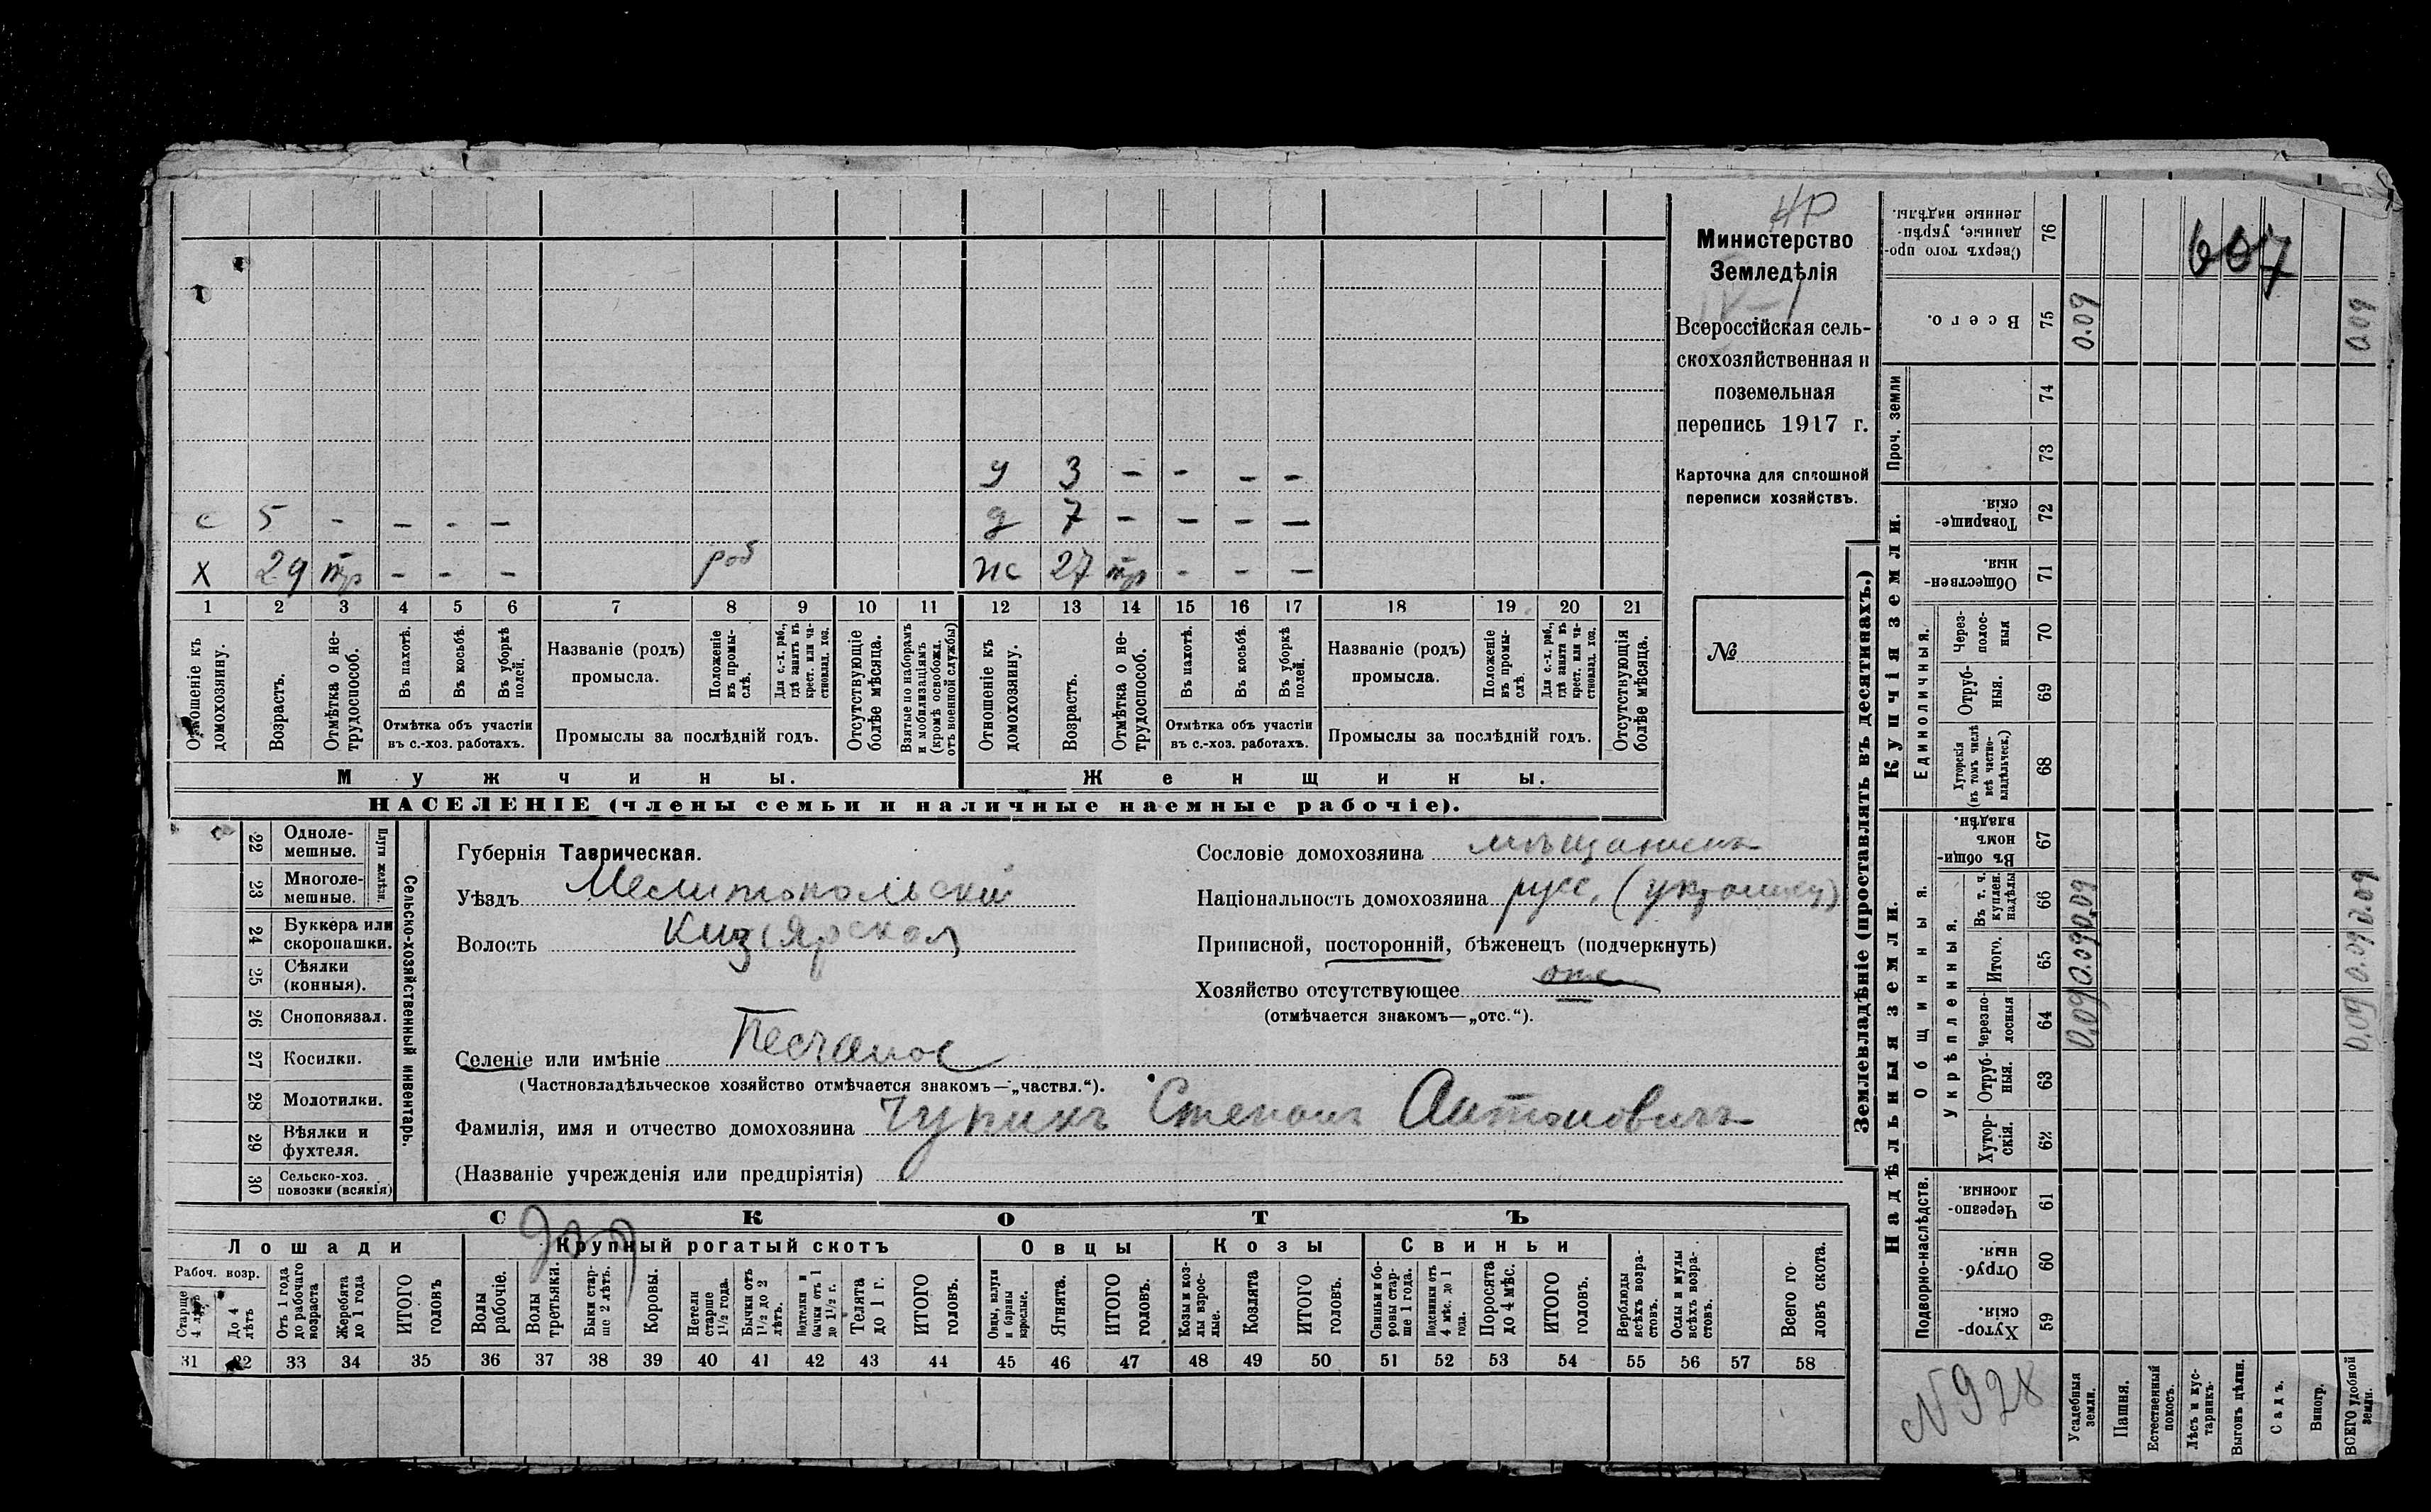 НР
Министерство
Земледѣлія
IV-1
Всероссійская сель-
скохозяйственная и
поземельная
перепись 1917 г.
Карточка для сплошной
переписи хозяйствъ.
№
у 3 – – – –
с 5 – – – – д 7 – – – –
х 29 тр – – – роб ж 27 тр – – –
1 2 3 4 5 6 7 8 9 10 11 12 13 14 15 16 17 18 19 20 21
Отношеніе къ домохозяину.
Возрастъ.
Отмѣтка о не-трудоспособ.
Въ пахотѣ.
Въ косьбѣ.
Въ уборкѣ полей.
Отмѣтка объ участіи въ с.-хоз. работахъ.
Названіе (родъ) промысла.
Положеніе въ промы-слѣ.
Для с.-х. раб., гдѣ занятъ въ крест. или ча-стновлад. хоз.
Промыслы за послѣдній годъ.
Отсутствующіе болѣе мѣсяца.
Взятые по наборамъ и мобилизаціямъ (кромѣ освобожд. отъ военной службы)
Отношеніе къ домохозяину.
Возрастъ.
Отмѣтка о не-трудоспособ.
Въ пахотѣ.
Въ косьбѣ.
Въ уборкѣ полей.
Отмѣтка объ участіи въ с.-хоз. работахъ.
Названіе (родъ) промысла.
Положеніе въ промы-слѣ.
Для с.-х. раб., гдѣ занята въ крест. или ча-стновлад. хоз.
Промыслы за послѣдній годъ.
Отсутствующія болѣе мѣсяца.
Мужчины. Женщины.
НАСЕЛЕНІЕ (члены семьи и наличные наемные рабочіе).
22 Одноле-мешные.
23 Многоле-мешные.
Плуги желѣзн.
24 Буккера или скоропашки.
25 Сѣялки (конныя).
26 Сноповязал.
27 Косилки.
28 Молотилки.
29 Вѣялки и фухтеля.
30 Сельско-хоз. повозки (всякія)
Сельско-хозяйственный инвентарь.
Губернія Таврическая.
Уѣздъ Мелитопольскій
Волость Кизіярская
Селеніе или имѣніе Песчаное
(Частновладѣльческое хозяйство отмѣчается знакомъ—„частвл.“).
Фамилія, имя и отчество домохозяина Чурихъ Степанъ Антоновичъ
(Названіе учрежденія или предпріятія)
Сословіе домохозяина мѣщанинъ
Національность домохозяина русс.
Приписной, посторонній, бѣженецъ (подчеркнуть)
Хозяйство отсутствующее отс
(отмѣчается знакомъ—„отс.“).
СКОТЪ
Лошади
Рабоч. возр.
Старше 4 лѣтъ
До 4 лѣтъ
Отъ 1 года до рабочаго возраста
Жеребята до 1 года
ИТОГО головъ
Крупный рогатый скотъ
Волы рабочіе.
Волы третьяки.
Быки стар-ше 2 лѣтъ.
Коровы.
Нетели старше 1½ года.
Бычки отъ 1½ до 2 лѣтъ.
Подтелки и бычки отъ 1 до 1½ г.
Телята до 1 г.
ИТОГО головъ.
Овцы
Овцы, валухи и бараны взрослые.
Ягнята.
ИТОГО головъ.
Козы
Козы и коз-лы взрос-лые.
Козлята
ИТОГО головъ.
Свиньи
Свиньи и бо-ровы стар-ше 1 года.
Подсвинки отъ 4 мѣс. до 1 года.
Поросята до 4 мѣс.
ИТОГО головъ.
Верблюды всѣхъ возра-стовъ.
Ослы и мулы всѣхъ возра-стовъ.
Всего го-ловъ скота.
31 32 33 34 35 36 37 38 39 40 41 42 43 44 45 46 47 48 49 50 51 52 53 54 55 56 57 58
Землевладѣніе (проставлять въ десятинахъ.)
Надѣльныя земли.
Подворно-наслѣдств.
Хутор-скія. 59
Отруб-ныя. 60
Черезпо-лосныя. 61
Общинныя.
Укрѣпленныя.
Хутор-скія. 62
Отруб-ныя. 63
Черезпо-лосныя 64
Итого. 65
Въ т. ч. куплен. надѣлы 66
Въ общин-номъ владѣн. 67
Купчія земли.
Единоличныя.
Хуторскія (въ томъ числѣ всѣ частно-владѣльческ.) 68
Отруб-ныя. 69
Через-полос-ныя 70
Обществен-ныя. 71
Товарище-скія. 72
Проч. земли
73 74
Всего. 75
Сверхъ того про-данные, укрѣп-ленные надѣлы. 76
607
0.09 0.09 0.09 0.09
0.09 0.09 0.09 0.09
N 928
Усадебныя земли.
Пашня.
Естественный покосъ.
Лѣсъ и кус-тарникъ.
Выгонъ цѣлин.
Садъ.
Виногр.
ВСЕГО удобной земли.